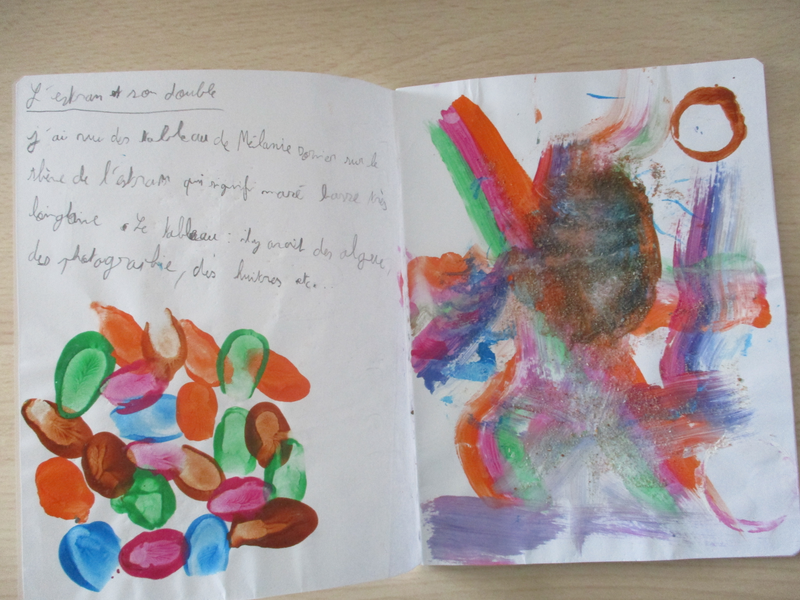 L'estran et son double
J'ai vue des tableau de Mélanie sur le
thène de l'estran qui signifi maré basse très
longtune Le tableau : il y avait des algues,
des photographie, des huitres etc...